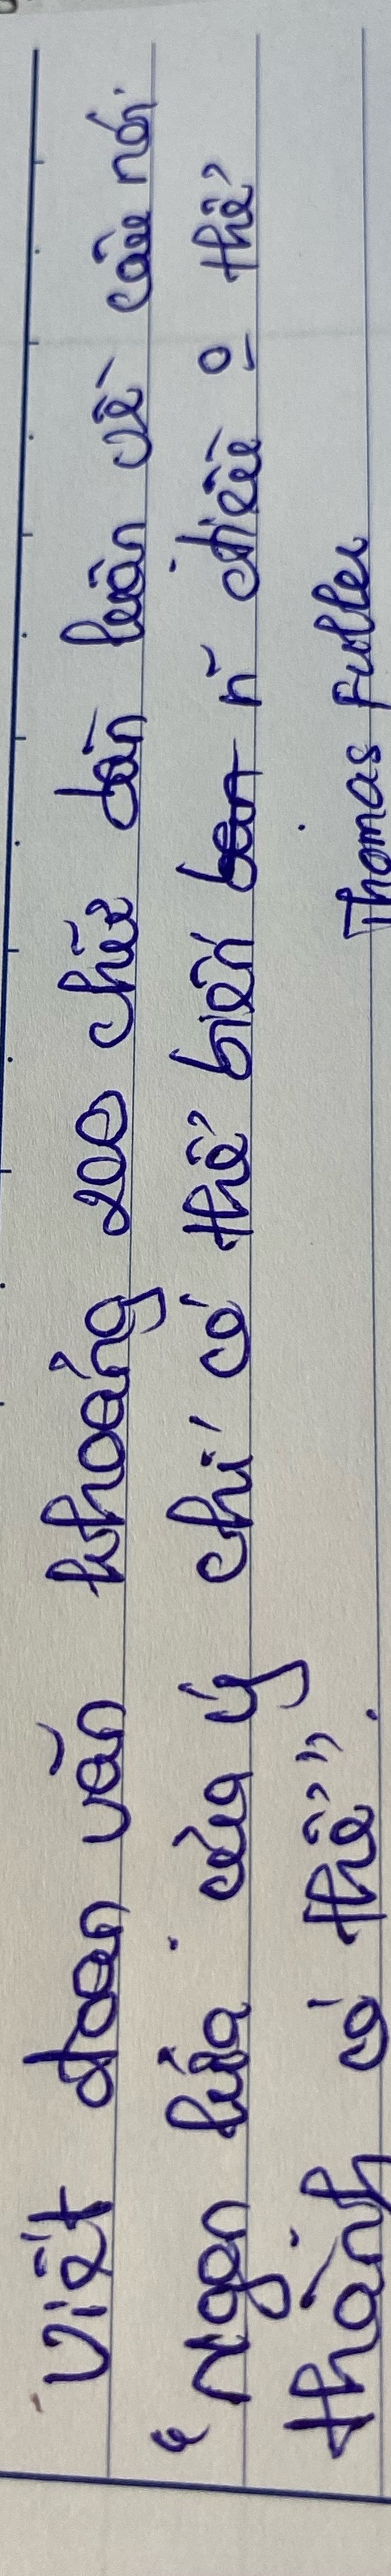 Viết đoạn văn khoảng 200 chữ bàn luận về câu nói.
"Ngọn lửa của ý chí có thể biến n~ điều o thể
thành có thể".
Thomas Fuller